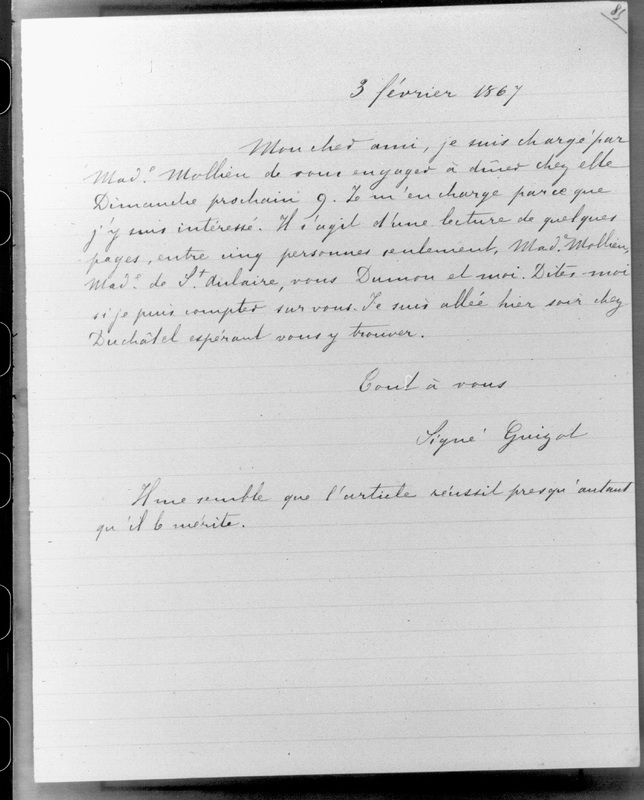 85
3 février 1867
Mon cher ami, je suis chargé par
Mad.e Mollien de vous engager à dîner chez elle
Dimanche prochain 9. Je m'en charge parce que
j'y suis intéressé. Il s'agit d'une lecture de quelques
pages, entre cinq personnes seulement, Mad.e Mollien,
Mad.e de St. Aulaire, vous Dumon et moi. Dites-moi
si je puis compter sur vous. Je suis allée hier soir chez
Duchâtel espérant vous y trouver.
Tout à vous
Signé Guizot
Il me semble que l'article réussit presqu'autant
qu'il le mérite.